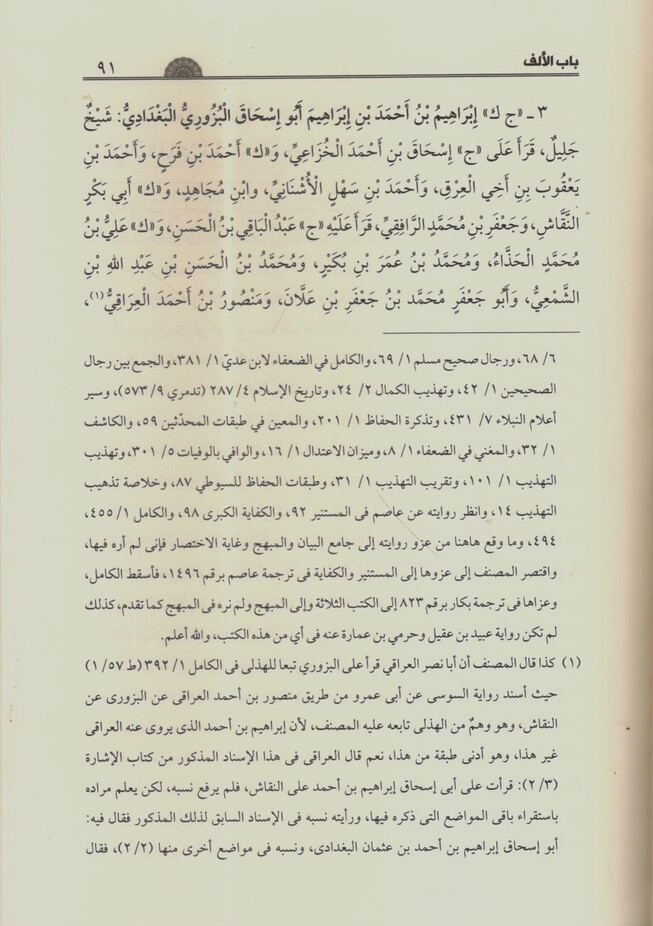 باب الألف
٩١
٣ ـ «ج ك» إِبْرَاهِيمُ بْنُ أَحْمَدَ بْنِ إِبْرَاهِيمَ أَبُو إِسْحَاقَ الْبُزُورِيُّ الْبَغْدَادِيُّ: شَيْخٌ
جَلِيلٌ، قَرَأَ عَلَى «ج» إِسْحَاقَ بْنِ أَحْمَدَ الْخُزَاعِيِّ، وَ«ك» أَحْمَدَ بْنِ فَرَحٍ، وَأَحْمَدَ بْنِ
يَعْقُوبَ بِنِ أَخِي الْعِرْقِ، وَأَحْمَدَ بْنِ سَهْلٍ الْأُشْنَانِيِّ، وابْنِ مُجَاهِدٍ، وَ«ك» أَبِي بَكْرٍ
النَّقَّاشِ، وَجَعْفَرِ بْنِ مُحَمَّدٍ الرَّافِقِيِّ، قَرَأَ عَلَيْهِ «ج» عَبْدُ الْبَاقِي بْنُ الْحَسَنِ، وَ«ك» عَلِيُّ بْنُ
مُحَمَّدٍ الْحَذَّاءُ، وَمُحَمَّدُ بْنُ عُمَرَ بْنِ بُكَيْرٍ، وَمُحَمَّدُ بْنُ الْحَسَنِ بْنِ عَبْدِ اللهِ بْنِ
الشَّمْعِيُّ، وَأَبُو جَعْفَرٍ مُحَمَّد بْنُ جَعْفَرِ بْنِ عَلَّانَ، وَمَنْصُورُ بْنُ أَحْمَدَ الْعِرَاقِيُّ(١)،
٦/ ٦٨، ورجال صحيح مسلم ١/ ٦٩، والكامل في الضعفاء لابن عديّ ١/ ٣٨١، والجمع بين رجال
الصحيحين ١/ ٤٢، وتهذيب الكمال ٢/ ٢٤، وتاريخ الإسلام ٤/ ٢٨٧ (تدمري ٩/ ٥٧٣)، وسير
أعلام النبلاء ٧/ ٤٣١، وتذكرة الحفاظ ١/ ٢٠١، والمعين في طبقات المحدّثين ٥٩، والكاشف
١/ ٣٢، والمغني في الضعفاء ١/ ٨، وميزان الاعتدال ١/ ١٦، والوافي بالوفيات ٥/ ٣٠١، وتهذيب
التهذيب ١/ ١٠١، وتقريب التهذيب ١/ ٣١، وطبقات الحفاظ للسيوطي ٨٧، وخلاصة تذهيب
التهذيب ١٤، وانظر روايته عن عاصم فى المستنير ٩٢، والكفاية الكبرى ٩٨، والكامل ١/ ٤٥٥،
٤٩٤، وما وقع هاهنا من عزو روايته إلى جامع البيان والمبهج وغاية الاختصار فإنى لم أره فيها،
واقتصر المصنف إلى عزوها إلى المستنير والكفاية فى ترجمة عاصم برقم ١٤٩٦، فأسقط الكامل،
وعزاها فى ترجمة بكار برقم ٨٢٣ إلى الكتب الثلاثة وإلى المبهج ولم نره فى المبهج كما تقدم، كذلك
لم تكن رواية عبيد بن عقيل وحرمي بن عمارة عنه فى أي من هذه الكتب، والله أعلم.
(١) كذا قال المصنف أن أبا نصر العراقي قرأ على البزوري تبعا للهذلى فى الكامل ١/ ٣٩٢ (ط ٥٧/ ١)
حيث أسند رواية السوسى عن أبى عمرو من طريق منصور بن أحمد العراقى عن البزورى عن
النقاش، وهو وهمٌ من الهذلى تابعه عليه المصنف، لأن إبراهيم بن أحمد الذى يروى عنه العراقى
غير هذا، وهو أدنى طبقة من هذا، نعم قال العراقى فى هذا الإسناد المذكور من كتاب الإشارة
(٣/ ٢): قرأت على أبى إسحاق إبراهيم بن أحمد على النقاش، فلم يرفع نسبه، لكن يعلم مراده
باستقراء باقى المواضع التى ذكره فيها، ورأيته نسبه فى الإسناد السابق لذلك المذكور فقال فيه:
أبو إسحاق إبراهيم بن أحمد بن عثمان البغدادى، ونسبه فى مواضع أخرى منها (٢/ ٢)، فقال